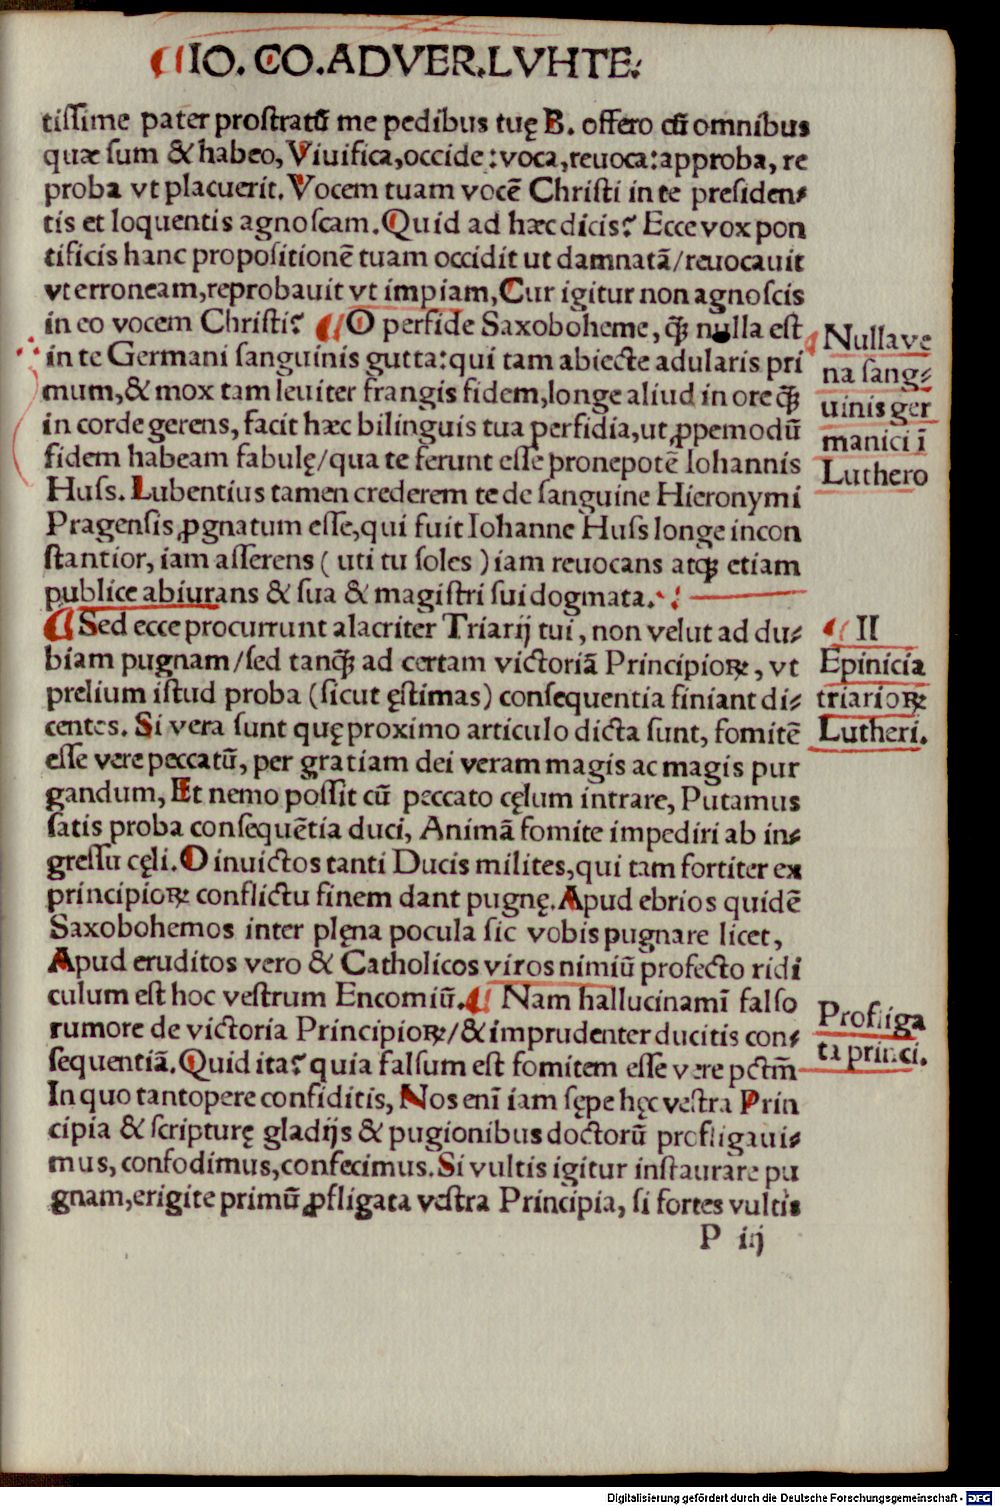 ¶IO. CO. ADVER. LVHTE.
tissime pater prostratū me pedibus tuę B. offero cū omnibus
quæ sum & habeo, Viuifica, occide: voca, reuoca: approba, re
proba vt placuerit. Vocem tuam vocē Christi in te presiden-
tis et loquentis agnoscam. Quid ad hæc dicis? Ecce vox pon
tificis hanc propositionē tuam occidit ut damnatā/reuocauit
vt erroneam, reprobauit vt impiam, Cur igitur non agnoscis
in eo vocem Christi? ¶O perfide Saxoboheme, ꝙ nulla est
in te Germani sanguinis gutta: qui tam abiecte adularis pri
mum, & mox tam leuiter frangis fidem, longe aliud in ore ꝙ̄
in corde gerens, facit hæc bilinguis tua perfidia, ut ꝓpemodū
fidem habeam fabulę/qua te ferunt esse pronepotē Iohannis
Huss. Lubentius tamen crederem te de sanguine Hieronymi
Pragensis ꝓgnatum esse, qui fuit Iohanne Huss longe incon
stantior, iam asserens ( uti tu soles ) iam reuocans atꝙ etiam
publice abiurans & sua & magistri sui dogmata.
¶Sed ecce procurrunt alacriter Triarij tui, non velut ad du-
biam pugnam/sed tanꝙ̄ ad certam victoriā Principioꝝ, vt
prelium istud proba (sicut ęstimas) consequentia finiant di-
centes. Si vera sunt quę proximo articulo dicta sunt, fomitē
esse vere peccatū, per gratiam dei veram magis ac magis pur
gandum, Et nemo possit cū peccato cęlum intrare, Putamus
satis proba consequētia duci, Animā fomite impediri ab in-
gressu cęli. O inuictos tanti Ducis milites, qui tam fortiter ex
principioꝝ conflictu finem dant pugnę. Apud ebrios quidē
Saxobohemos inter plęna pocula sic vobis pugnare licet,
Apud eruditos vero & Catholicos viros nimiū profecto ridi
culum est hoc vestrum Encomiū. ¶ Nam hallucinamī falso
rumore de victoria Principioꝝ/& imprudenter ducitis con-
sequentiā. Quid ita? quia falsum est fomitem esse vere pctm̄
In quo tantopere confiditis, Nos enī iam sępe hęc vestra Prin
cipia & scripturę gladijs & pugionibus doctorū profligaui-
mus, confodimus, confecimus. Si vultis igitur instaurare pu
gnam, erigite primū ꝓfligata vestra Principia, si fortes vultis
P iij
¶Nulla ve
na sang-
uinis ger
manici ī
Luthero
¶ II
Epinicia
triarioꝝ
Lutheri.
Profliga
ta princi.
Digitalisierung gefördert durch die Deutsche Forschungsgemeinschaft - DFG